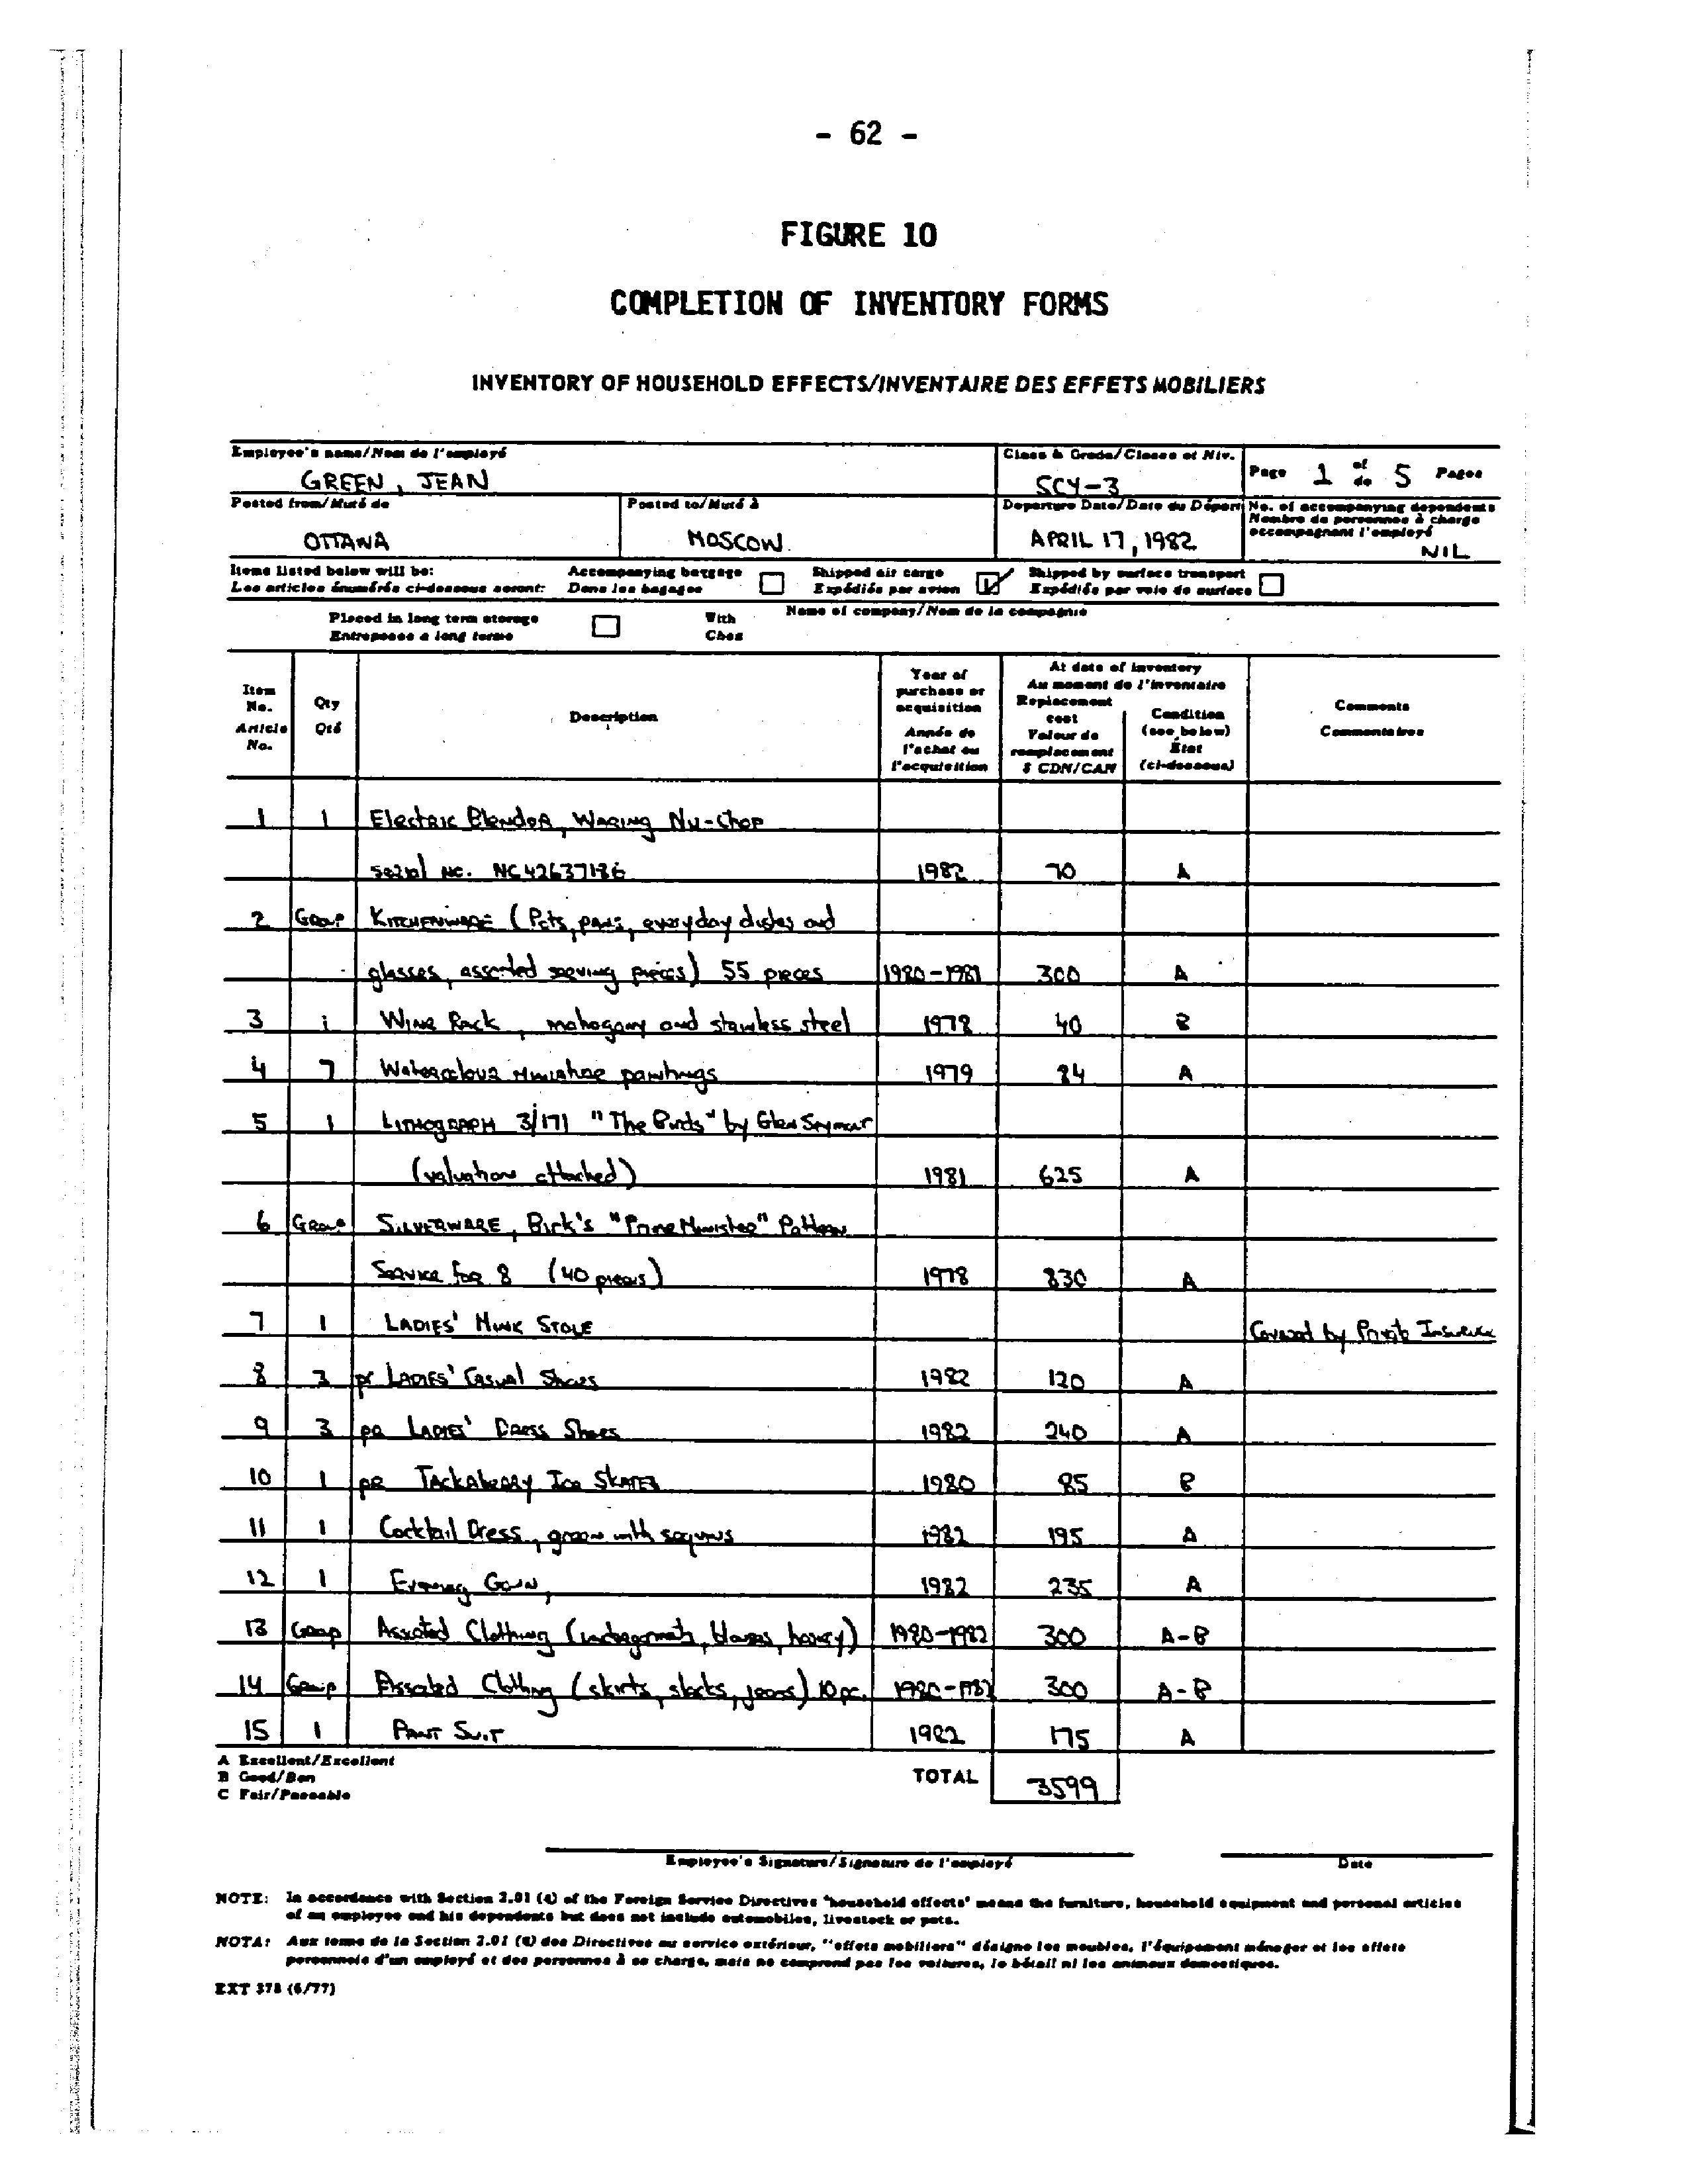 - 62 -
FIGURE 10
COMPLETION OF INVENTORY FORMS
INVENTORY OF HOUSEHOLD EFFECTS/INVENTAIRE DES EFFETS MOBILIERS
Employee's name/Nom de l'employé
GREEN, JEAN
Class & Grade/Classe et Niv.
SCY-3
Page 1 of/de 5 Pages
Posted from/Muté de
OTTAWA
Posted to/Muté à
MOSCOW
Departure Date/Date du Départ
APRIL 17, 1982
No. of accompanying dependents
Nombre de personnes à charge
accompagnant l'employé
NIL
Items listed below will be: Accompanying baggage Shipped air cargo Shipped by surface transport
Les articles énumérés ci-dessous seront: Dans les bagages Expédiés par avion Expédiés par voie de surface
Placed in long term storage With Name of company/Nom de la compagnie
Entreposes a long terme Chez
Item No. Article No.
Qty Qté
Description
Year of purchase or acquisition Année de l'achat ou l'acquisition
At date of inventory
Au moment de l'inventaire
Replacement cost Valeur de remplacement $ CDN/CAN
Condition (see below) État (ci-dessous)
Comments Commentaires
1 1 Electric Blender, Waring Nu-Chop
serial no. NC42637186 1982 70 A
2 Group KITCHENWARE (Pots, pans, everyday dishes and
glasses, assorted serving pieces) 55 pieces 1980-1981 300 A
3 1 Wine Rack, mahogany and stainless steel 1978 40 B
4 7 Watercolour miniature paintings 1979 84 A
5 1 LITHOGRAPH 3/171 "The Birds" by Glen Seymour
(valuation attached) 1981 625 A
6 Group SILVERWARE, Birk's "Prime Minister" Pattern
Service for 8 (40 pieces) 1978 830 A
7 1 LADIES' MINK STOLE Covered by Private Insurance
8 3 pr LADIES' Casual Shoes 1982 120 A
9 3 pr LADIES' Dress Shoes 1982 240 A
10 1 pr Tackaberry Ice Skates 1980 85 B
11 1 Cocktail Dress, green with sequins 1982 195 A
12 1 Evening Gown, 1982 235 A
13 Group Assorted Clothing (undergarments, blouses, hosiery) 1980-1982 300 A-B
14 Group Assorted Clothing (skirts, slacks, jeans) 10 pc. 1980-1982 300 A-B
15 1 PANT SUIT 1982 175 A
A Excellent/Excellent
B Good/Bon
C Fair/Passable
TOTAL 3599
Employee's Signature/Signature de l'employé Date
NOTE: In accordance with Section 2.01 (4) of the Foreign Service Directives "household effects" means the furniture, household equipment and personal articles
of an employee and his dependents but does not include automobiles, livestock or pets.
NOTA: Aux terme de la Section 2.01 (4) des Directives au service extérieur, "effets mobiliers" désigne les meubles, l'équipement ménager et les effets
personnels d'un employé et des personnes à sa charge, mais ne comprend pas les voitures, le bétail ni les animaux domestiques.
EXT 378 (6/77)